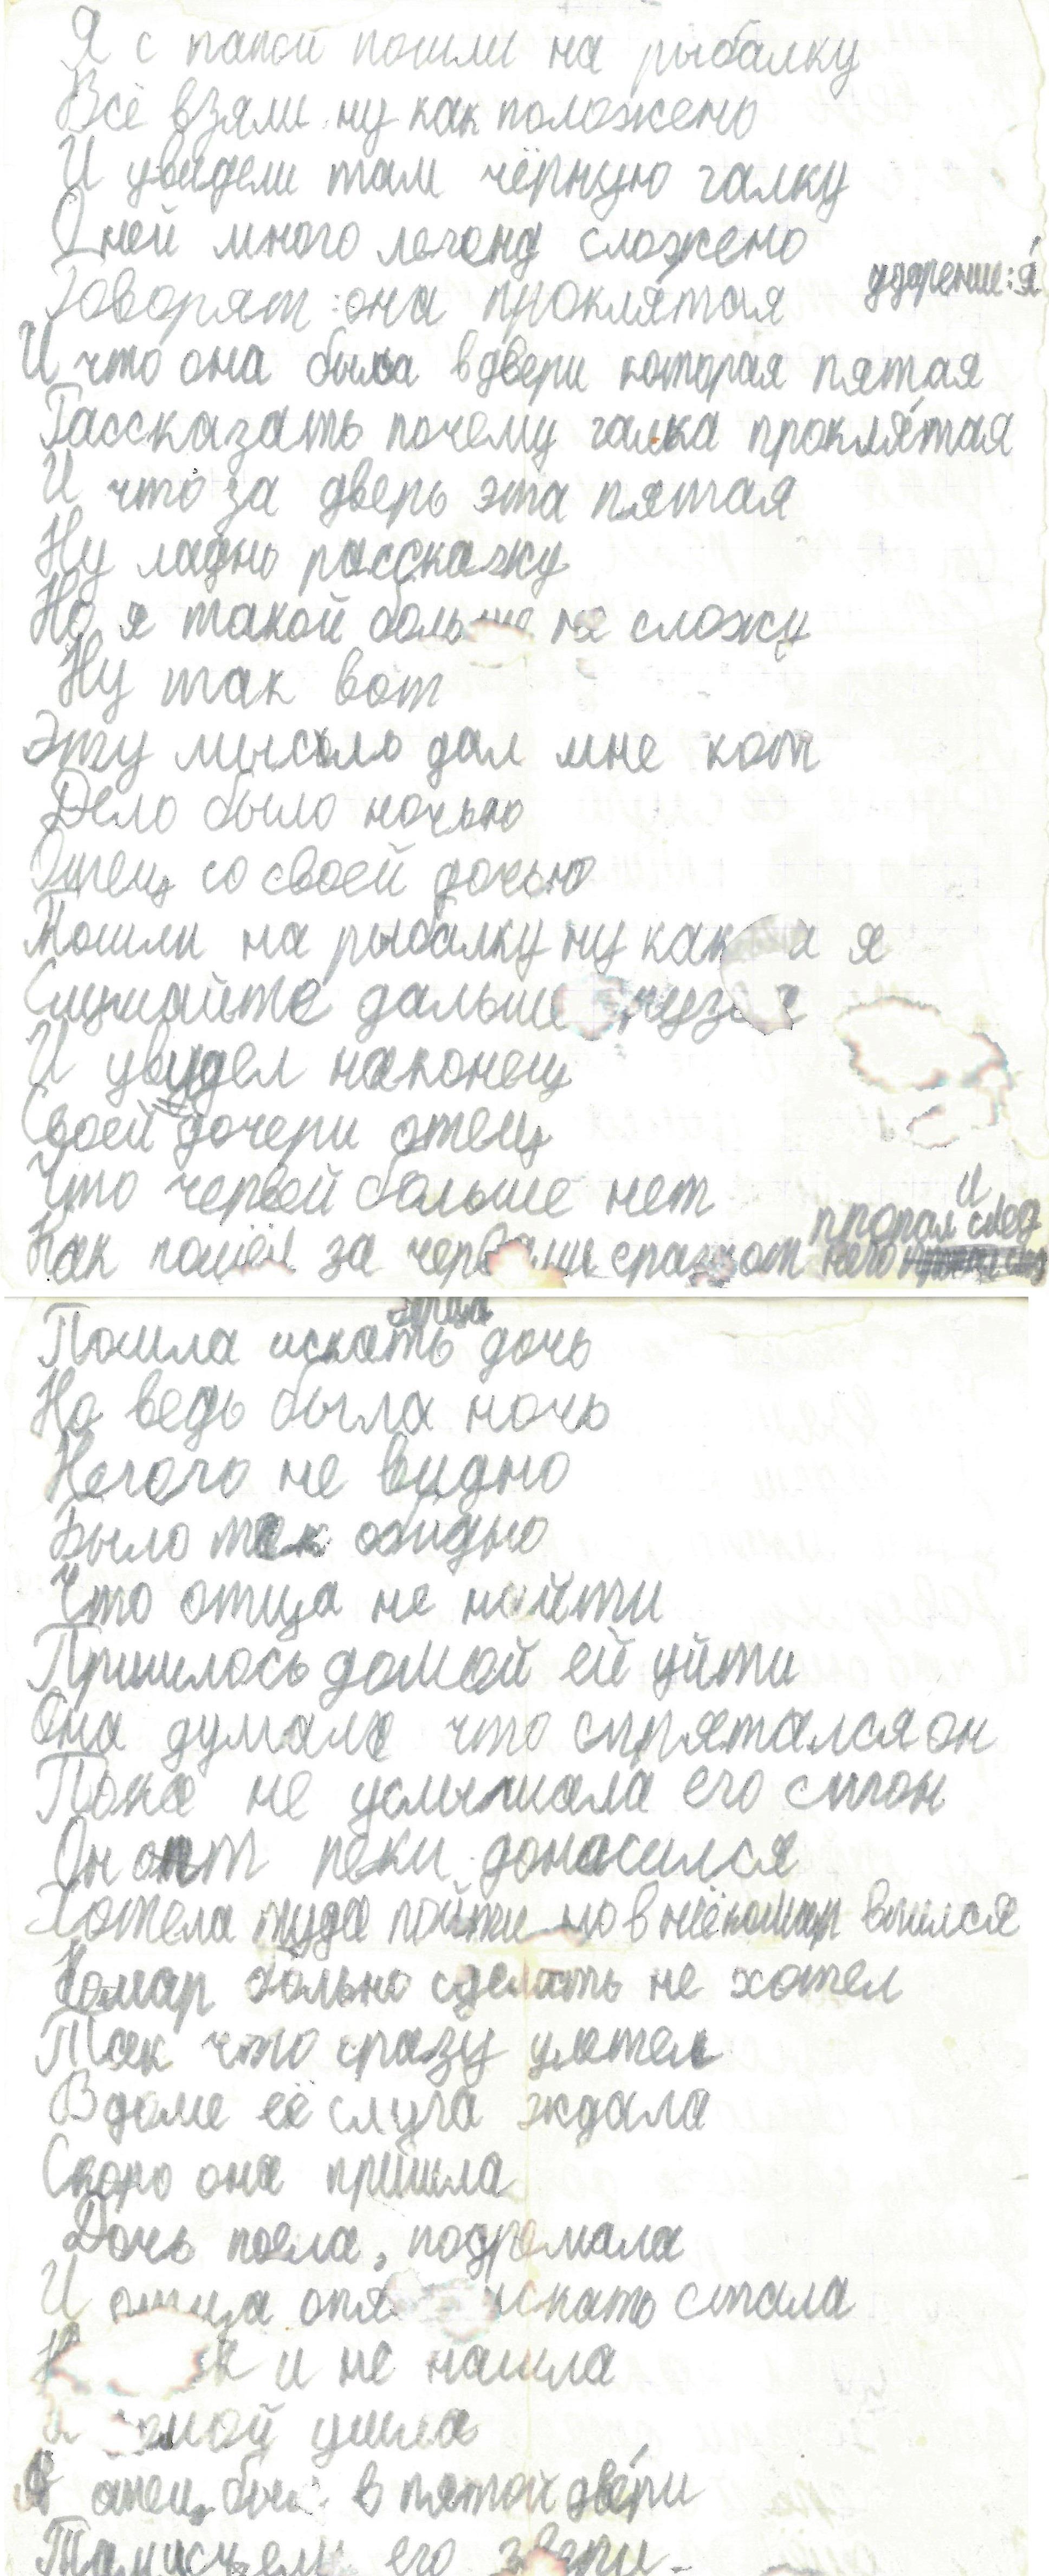 Я с папой пошли на рыбалку
Всё взяли ну как положено
И увидели там чёрную галку
О ней много легенд сложено
Говорят: она прокля́тая ударение: я́
И что она была в двери которая пятая
Рассказать почему галка прокля́тая
И что за дверь эта пятая
Ну ладно расскажу
Но я такой больше не сложу
Ну так вот
Эту мысль дал мне кот
Дело было ночью
Отец со своей дочью
Пошли на рыбалку ну как и я
Слушайте дальше друзья
И увидел наконец
Своей дочери отец
Что червей больше нет
Как пошёл за червями сразу от него пропал и след
Пошла искать отца дочь
Но ведь была ночь
Нечого не видно
Было так обидно
Что отца не найти
Пришлось домой ей уйти
Она думала что спрятался он
Пока не услышала его стон
Он от реки доносился
Хотела туда пойти но в неё комар впился
Комар больно сделать не хотел
Так что сразу улетел
В доме её слуга ждала
Скоро она пришла
Дочь поела, подремала
И отца опять искать стала
и не нашла
И домой ушла
А отец был в пятой две́ри
его звери